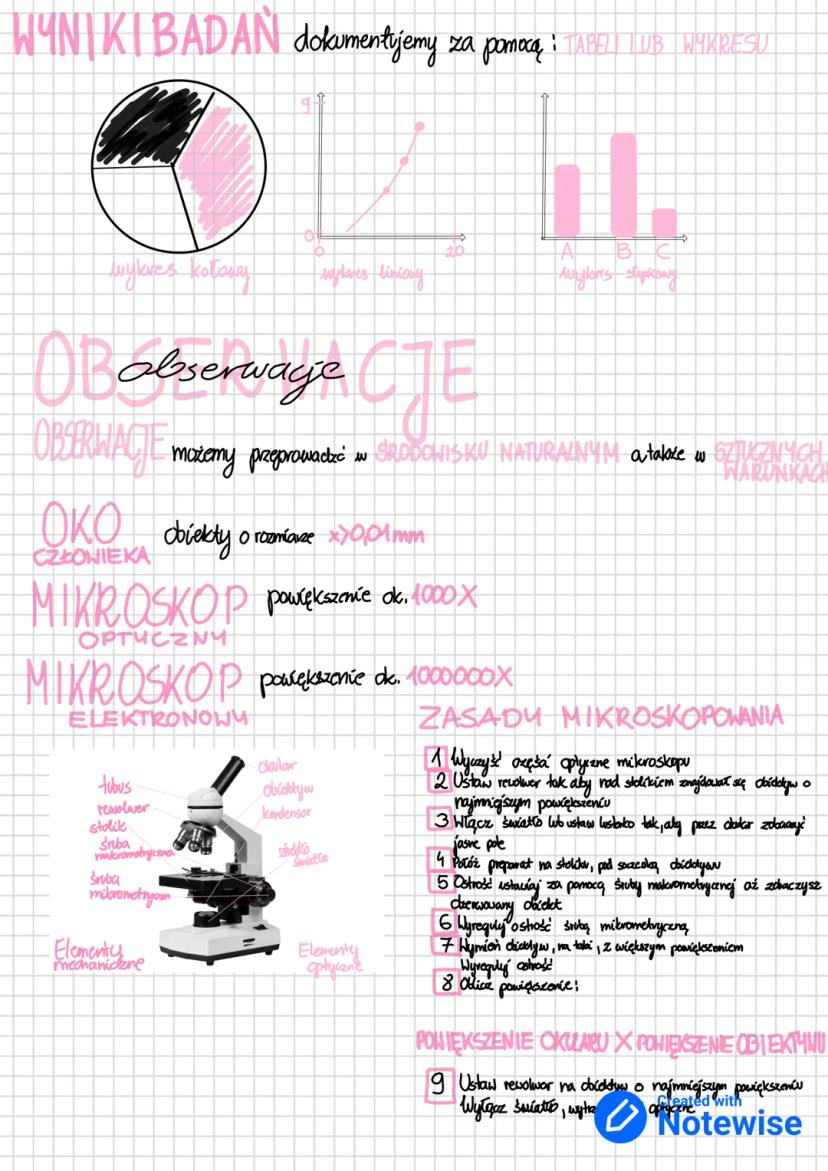 WYNIKI BADAŃ dokumentujemy za pomocą: TABELI LUB WYKRESU
9
0
0 20
A B C
wykres kołowy wykres liniowy wykres słupkowy
OBSERWACJE
obserwacje
OBSERWACJE możemy przeprowadzć w ŚRODOWISKU NATURALNYM a także w SZTUCZNYCH
WARUNKACH
OKO
CZŁOWIEKA
obiekty o rozmiarze x>0,01mm
MIKROSKOP powiększenie ok. 1000X
OPTYCZNY
MIKROSKOP powiększenie ok. 1000000X
ELEKTRONOWY
tubus
rewolwer
stolik
śruba
makrometryczna
śruba
mikrometryczna
Elementy
mechaniczne
okular
obiektyw
kondensor
źródło
światła
Elementy
optyczne
ZASADY MIKROSKOPOWANIA
1 Wyczyść część optyczne mikroskopu
2 Ustaw rewolwer tak aby nad stolikiem znajdował się obiektyw o
najmniejszym powiększeniu
3 Włącz światło lub ustaw lusterko tak, aby przez okular zobaczyć
jasne pole
4 Połóż preparat na stoliku, pod soczewką obiektywu
5 Ostrość ustawiaj za pomocą śruby makrometrycznej aż zobaczysz
obserwowany obiekt
6 Wyreguluj ostrość śrubą mikrometryczną
7 Wymień obiektyw, na taki, z większym powiększeniem
Wyreguluj ostrość
8 Oblicz powiększenie:
POWIĘKSZENIE OKULARU X POWIĘKSZENIE OBIEKTYWU
9 Ustaw rewolwer na obiektyw o najmniejszym powiększeniu
Wyłącz światło, optyczne
Created with
Notewise